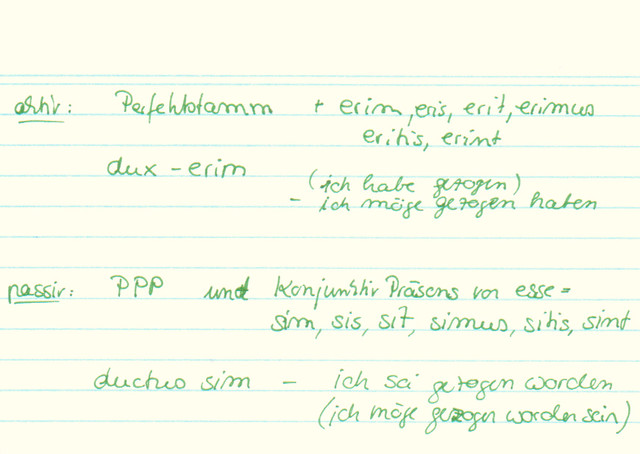 aktiv: Perfektstamm + erim, eris, erit, erimus
eritis, erint
dux - erim (ich habe gezogen)
- ich möge gezogen haben
passiv: PPP und Konjunktiv Präsens von esse =
sim, sis, sit, simus, sitis, sint
ductus sim - ich sei gezogen worden
(ich möge gezogen worden sein)